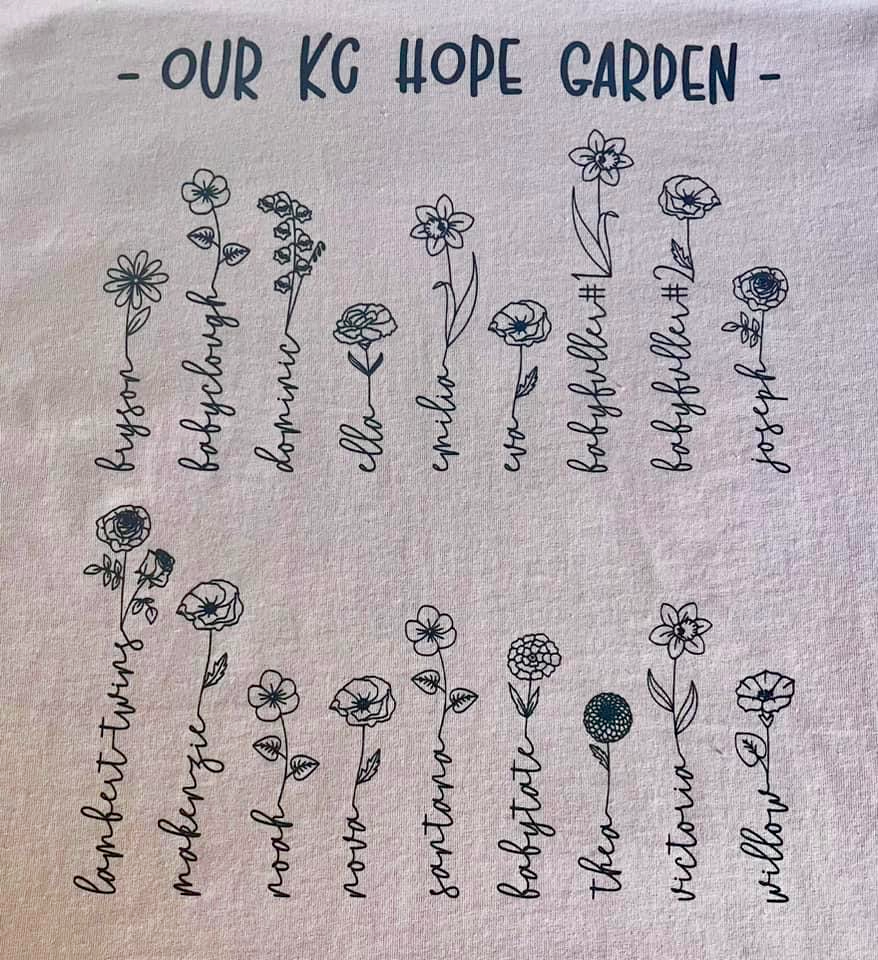 - OUR KC HOPE GARDEN -
bryson
babyclough
dominic
ella
emilia
eva
babyfuller#1
babyfuller#2
joseph
lambert-twins
makenzie
noah
nova
santana
babytate
thea
victoria
willow